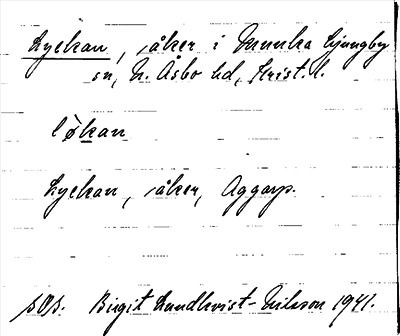 Lyckan, åker i Munka Ljungby
sn, N. Åsbo hd, Krist. l.
løkan
Lyckan, åker, Aggarp.
Birgit Lundkvist-Nilsson 1941.